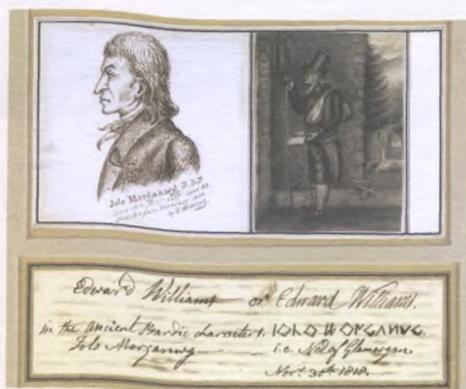 Iolo Morganwg, B.B.D.
by E. Waring
Edward Williams or Edward Williams.
in the Ancient Bardic characters. IOLO MORGANWG.
Iolo Morganwg i.e. Ned of Glamorgan.
Novr. 30th 1818.